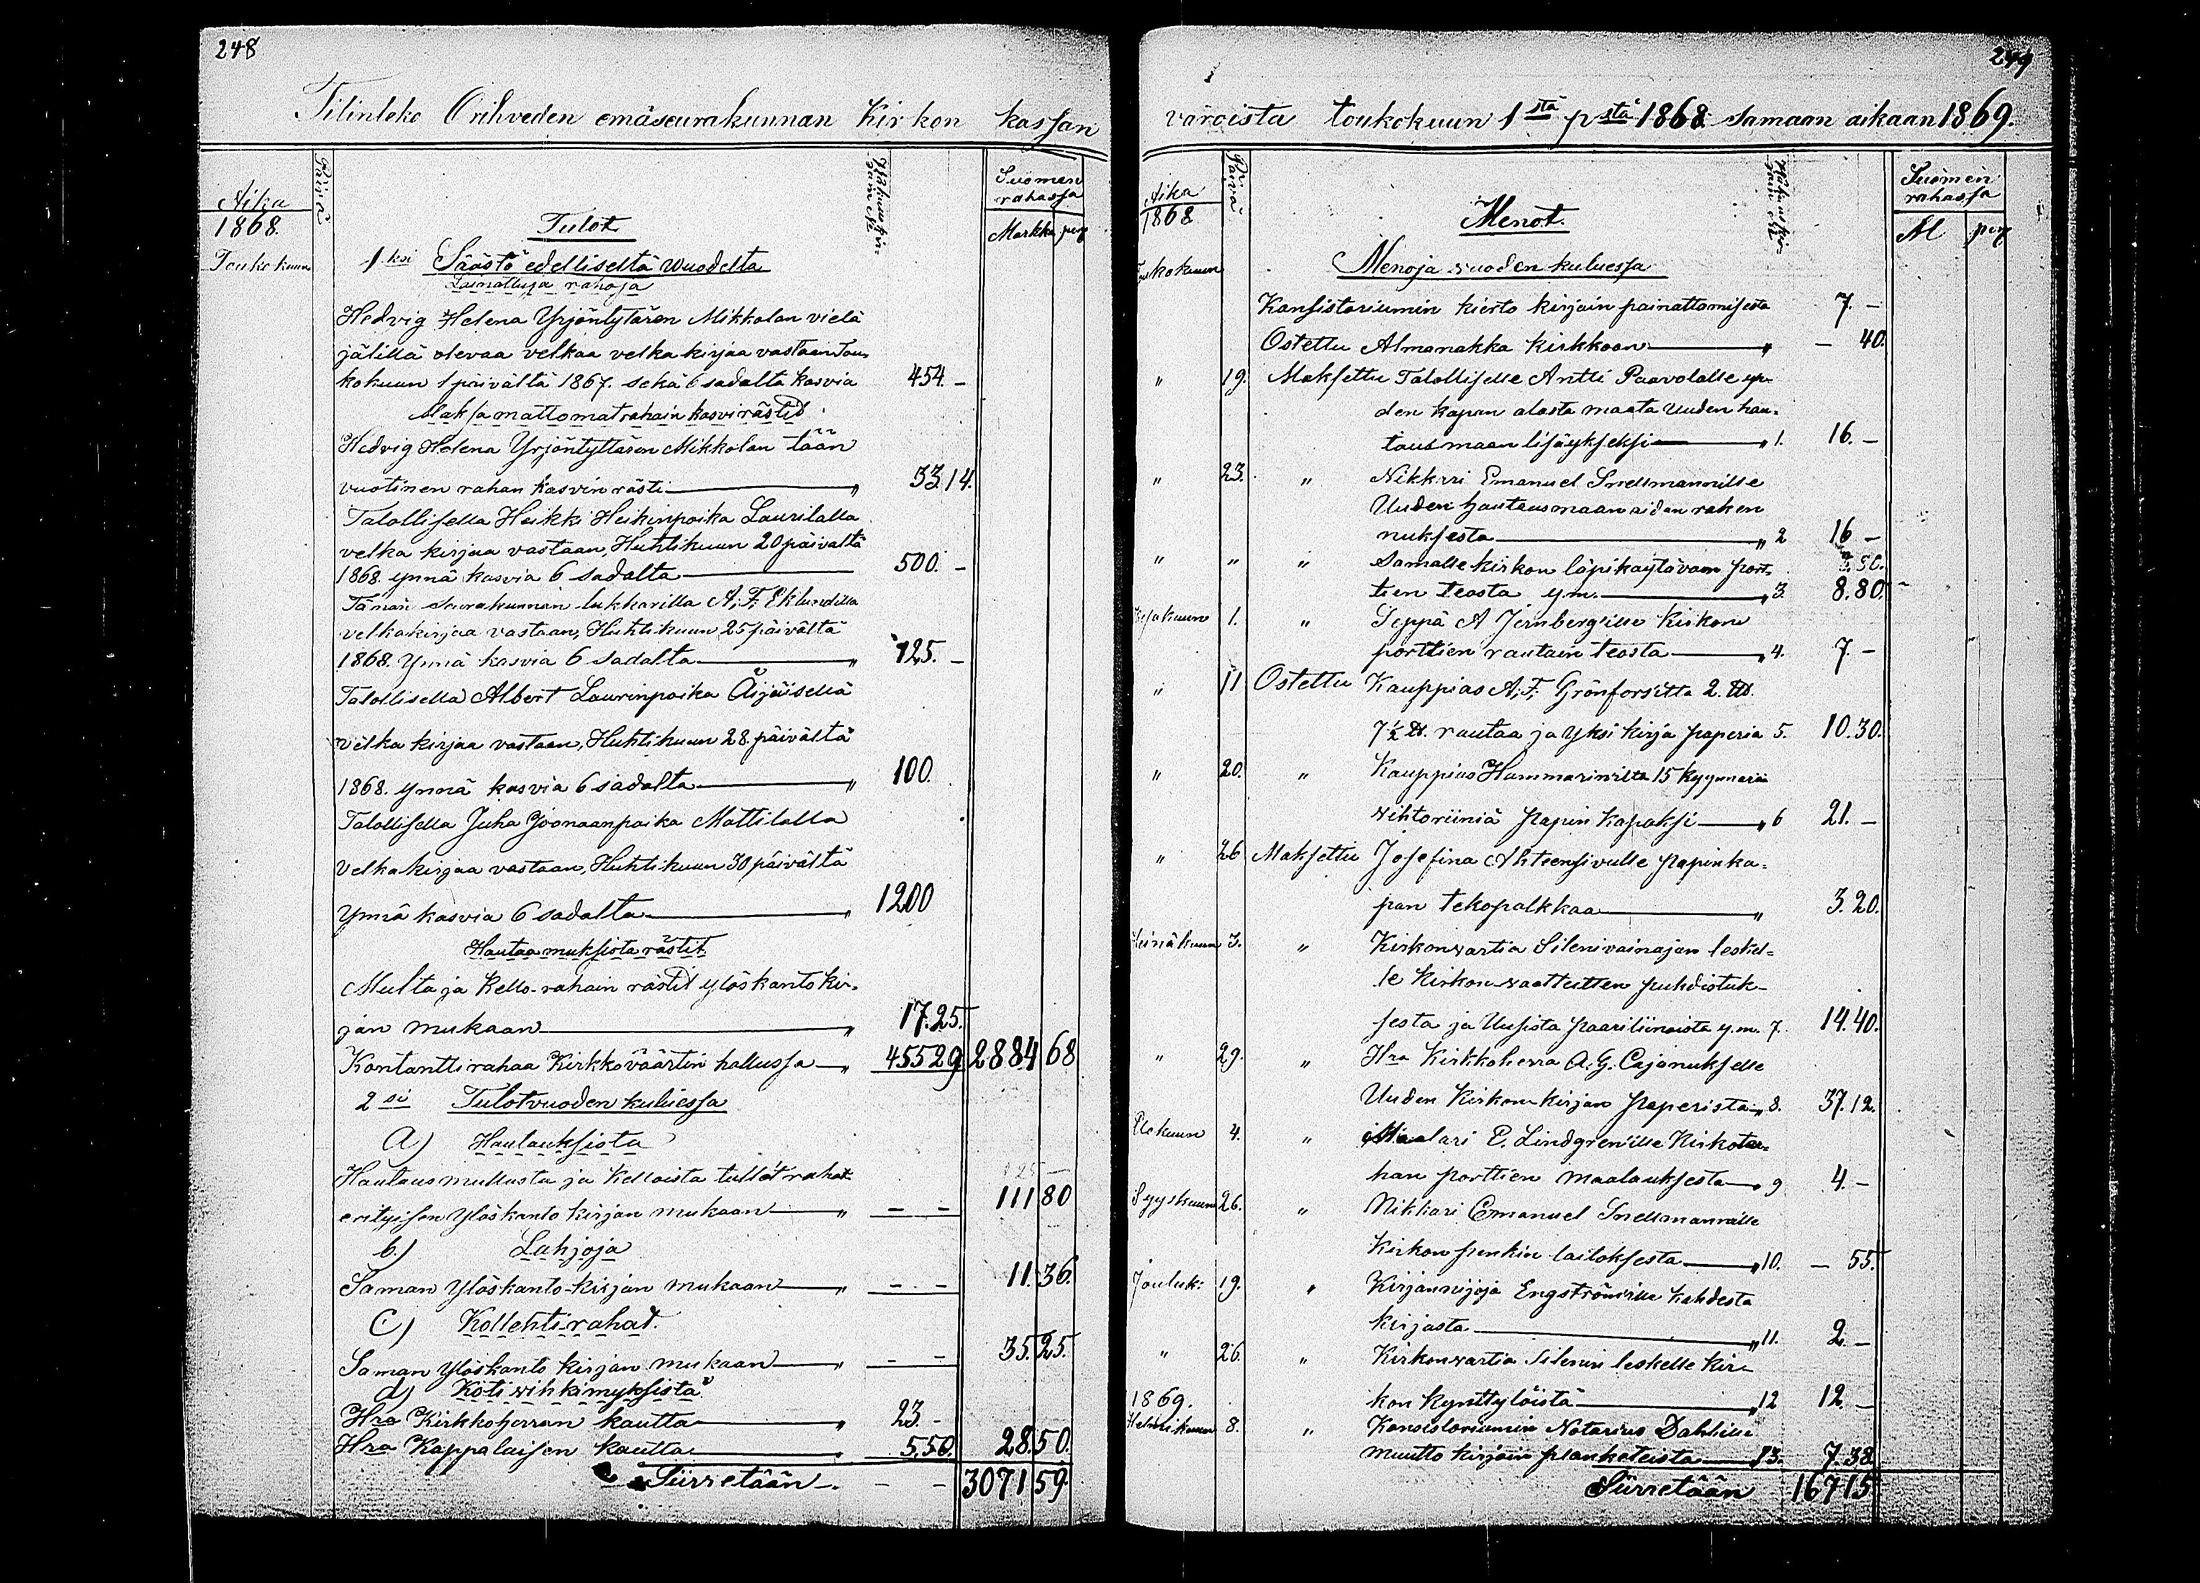 248
Tilinteko Orihveden emäseurakunnan Kirkon kassan
Aika
Päivä
Suomen
rahassa
1868.
Tulot
Markka pen
Toukokuun
1ksi Säästö edelliseltä wuodelta
Lainattuja rahoja
Hedvig Helena Yrjöntytären Mikkolan vielä
jälillä olevaa velkaa velka kirjaa vastaan Tou-
kokuun 1 päivältä 1867. sekä 6 sadalta kasvia 454. –
Maksamattomat rahain kasvirästid
Hedvig Helena Yrjöntyttären Mikkolan tään
vuotinen rahan kasvin rästi " 33.14.
Talollisella Heikki Heikinpoika Laurilalla
velka kirjaa vastaan, Huhtikuun 20 päivältä
1868. ynnä kasvia 6 sadalta 500. –
Tämän seurakunnan lukkarilla A. F. Eklundilla
velkakirjaa vastaan, Huhtikuun 25 päivältä
1868. Ynnä kasvia 6 sadalta " 125. –
Talollisella Albert Laurinpoika Äijäisellä
velka kirjaa vastaan, Huhtikuun 28. päivältä
1868. ynnä kasvia 6 sadalta " 100.
Talollisella Juha Joonaanpoika Mattilalla
Velkakirjaa vastaan, Huhtikuun 30 päivältä
Ynnä kasvia 6 sadalta " 1200
Hautaamuksista rästit
Multa ja Kello-rahain rästid ylöskanto kir-
jan mukaan " 17.25.
Kontantti rahaa Kirkkoväärtin hallussa " 455 29 2884 68
2si Tulot vuoden kuluessa
a) Hautauksista
Hautausmullusta ja Kelloista tullet rahat
erityisen Ylöskanto kirjan mukaan " – – 111 80
b) Lahjoja
Saman Ylöskanto-kirjan mukaan " – – 11. 36.
C) Kollehti-rahat.
Saman Ylöskanto kirjan mukaan " – – 35. 25.
d) Koti vihkimyksistä
Hra Kirkkoherran kautta " 23. –
Hra Kappalaisen kautta " 5,50. 28 50.
Siirretään – – – 3071 59.
249
varoista toukokuun 1stä pstä 1868 samaan aikaan 1869.
Aika
Päivä
Suomen
rahassa
1868
Menot.
M pen
Toukokuun
Menoja vuoden kuluessa
Konsistoriumin kierto kirjain painattamisesta 7. –
Ostettu Almanakka Kirkkoon " – 40.
" 19. Maksettu Talolliselle Antti Paavolalle yh-
den kapan alasta maata Uuden hau-
tausmaan lisäykseksi " 1. 16. –
" 23. " Nikkari Emanuel Snellmannille
Uuden hautausmaan aidan raken
nuksesta " 2 16 –
" " " Samalle kirkon läpikäytävän port-
tien teosta y.m. " 3. 8.80.
Kesäkuun 1. " Seppä A Jernberg'ille Kirkon
porttien rautain teosta " 4. 7. –
" 11 Ostettu Kauppias A. F. Grönfors'itta 2. ℔.
7½ ℔. rautaa ja Yksi kirja paperia 5. 10.30.
" 20. " Kauppias Hammarinilta 15 kyynärää
vihtoriiniä Papin kapaksi " 6 21. –
" 26 Maksettu Josefina Ahteensivulle Papinka-
pan tekopalkkaa " 3.20.
Heinäkuun 3. " Kirkonvartia Sileni vainajan leskel-
le Kirkon vaatteitten puhdistuk-
sesta ja Uusista Paariliinoista y.m. 7. 14.40.
" 29. " Hra Kirkkoherra A. G. Cajanukselle
Uuden Kirkon-kirjan Paperista " 8. 37.12.
Elokuun 4. " Maalari E. Lindgren'ille Kirkotar-
han porttien maalauksesta " 9 4. –
Syyskuun 26. " Nikkari Emanuel Snellmannille
Kirkon penkin laitoksesta " 10. – 55.
Jouluk: 19. " Kirjannijoja Engströmille kahdesta
kirjasta " 11. 2. –
" 26. " Kirkonvartia Silenin leskelle kir-
1869. kon kynttylöistä " 12 12. –
Helmikuun 8. " Konsistoriumin Notarius Dahlille
muutto kirjain planketeista 13. 7.38
Siirretään 167 15